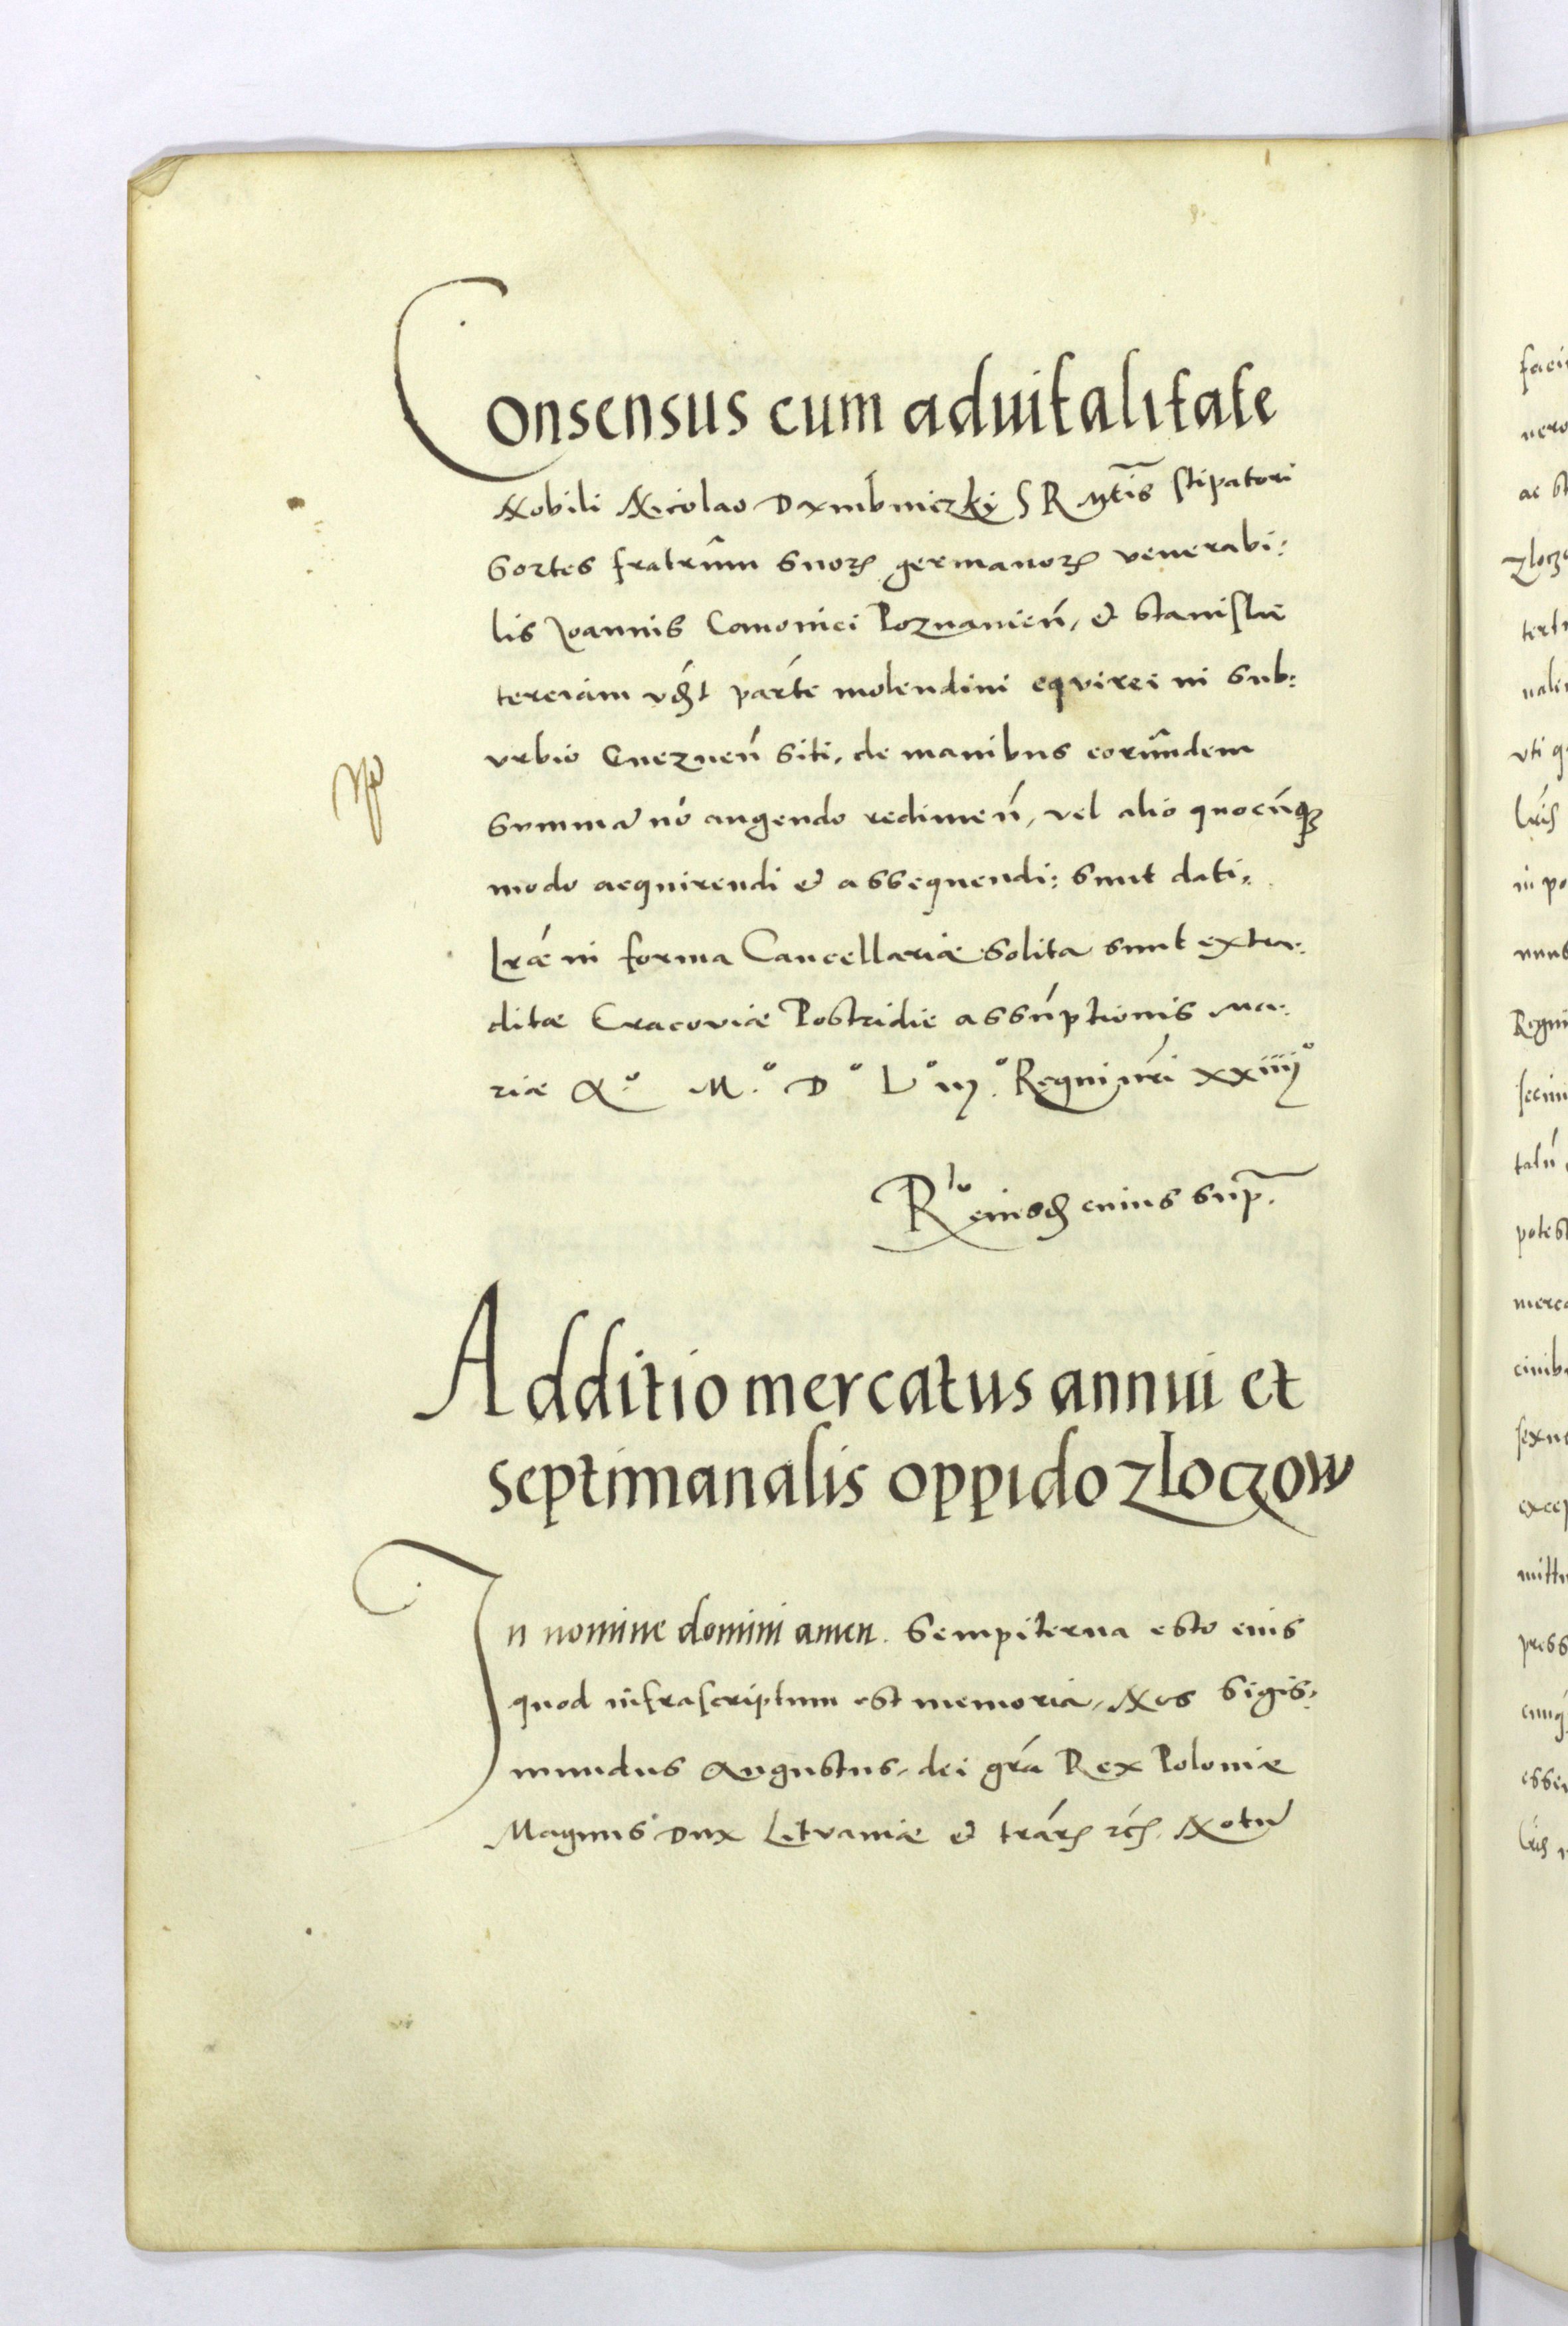 Consensus cum aduitalitate
Nobili Nicolao Dxmbniczky S R Mtis stipatori
sortes fratrum suorꝝ germanorꝝ venerabi:
lis Joannis Canonici Poznanien̄, et Stanislai
terciam parte molendini equirei in sub:
vrbio Gneznen̄ siti, de manibus eorundem
summa nō augendo redimen̄, vel alio quocūqꝫ
modo acquirendi et assequendi: sunt dati:
Lrae in forma Cancellariae solita sunt extra:
ditae Cracoviae Postridie assūptionis Ma:
riae A.º M.º Dº Lº iijº. Regni nri xxiiijº
Rlo eiusdem cuius sup.
Additio mercatus annui et
septimanalis oppido zloczow
In nomine domini amen. Sempiterna esto eius
quod infrascriptum est memoria, Nos Sigis:
mundus Augustus, dei gra Rex Poloniae
Magnus Dux Lituaniae et
facie
nero
ac
zlocz
uti
lris
in po
Regni
talū
potest
merca
excep
mitt
press
esse
lris